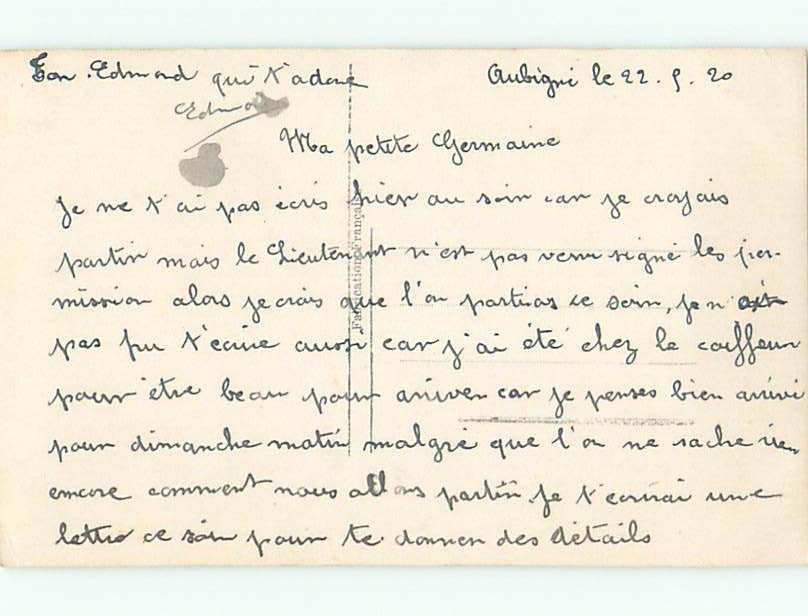 Ton Edmond qui t'adore
Edmond
Aubigni le 22. 5. 20
Ma petite Germaine
Je ne t'ai pas écris hier au soir car je croyais
partir mais le Lieutenant n'est pas venu signé les per-
mission alors je crois que l'on partiras ce soir, je n'ait
pas pu t'écrire aussi car j'ai été chez le coiffeur
pour être beau pour arriver car je penses bien arrivé
pour dimanche matin malgré que l'on ne sache rien
encore comment nous allons partir. Je t'ecrirai une
lettre ce soir pour te donner des détails
Fabrication Française